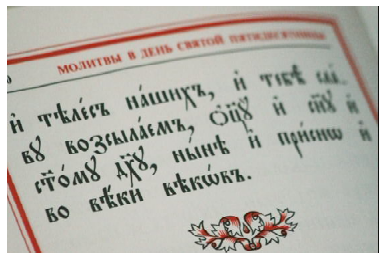 МОЛИТВЫ В ДЕНЬ СВЯТОЙ ПЯТИДЕСЯТНИЦЫ
и҆ тѣле́съ на́шихъ, и҆ тебѣ̀ сла́-
вꙋ возсыла́емъ, ѻ҆ц҃ꙋ̀ и҆ сн҃ꙋ и҆
ст҃о́мꙋ дх҃ꙋ, ны́нѣ и҆ при́снѡ и҆
во вѣ́ки вѣкѡ́въ.